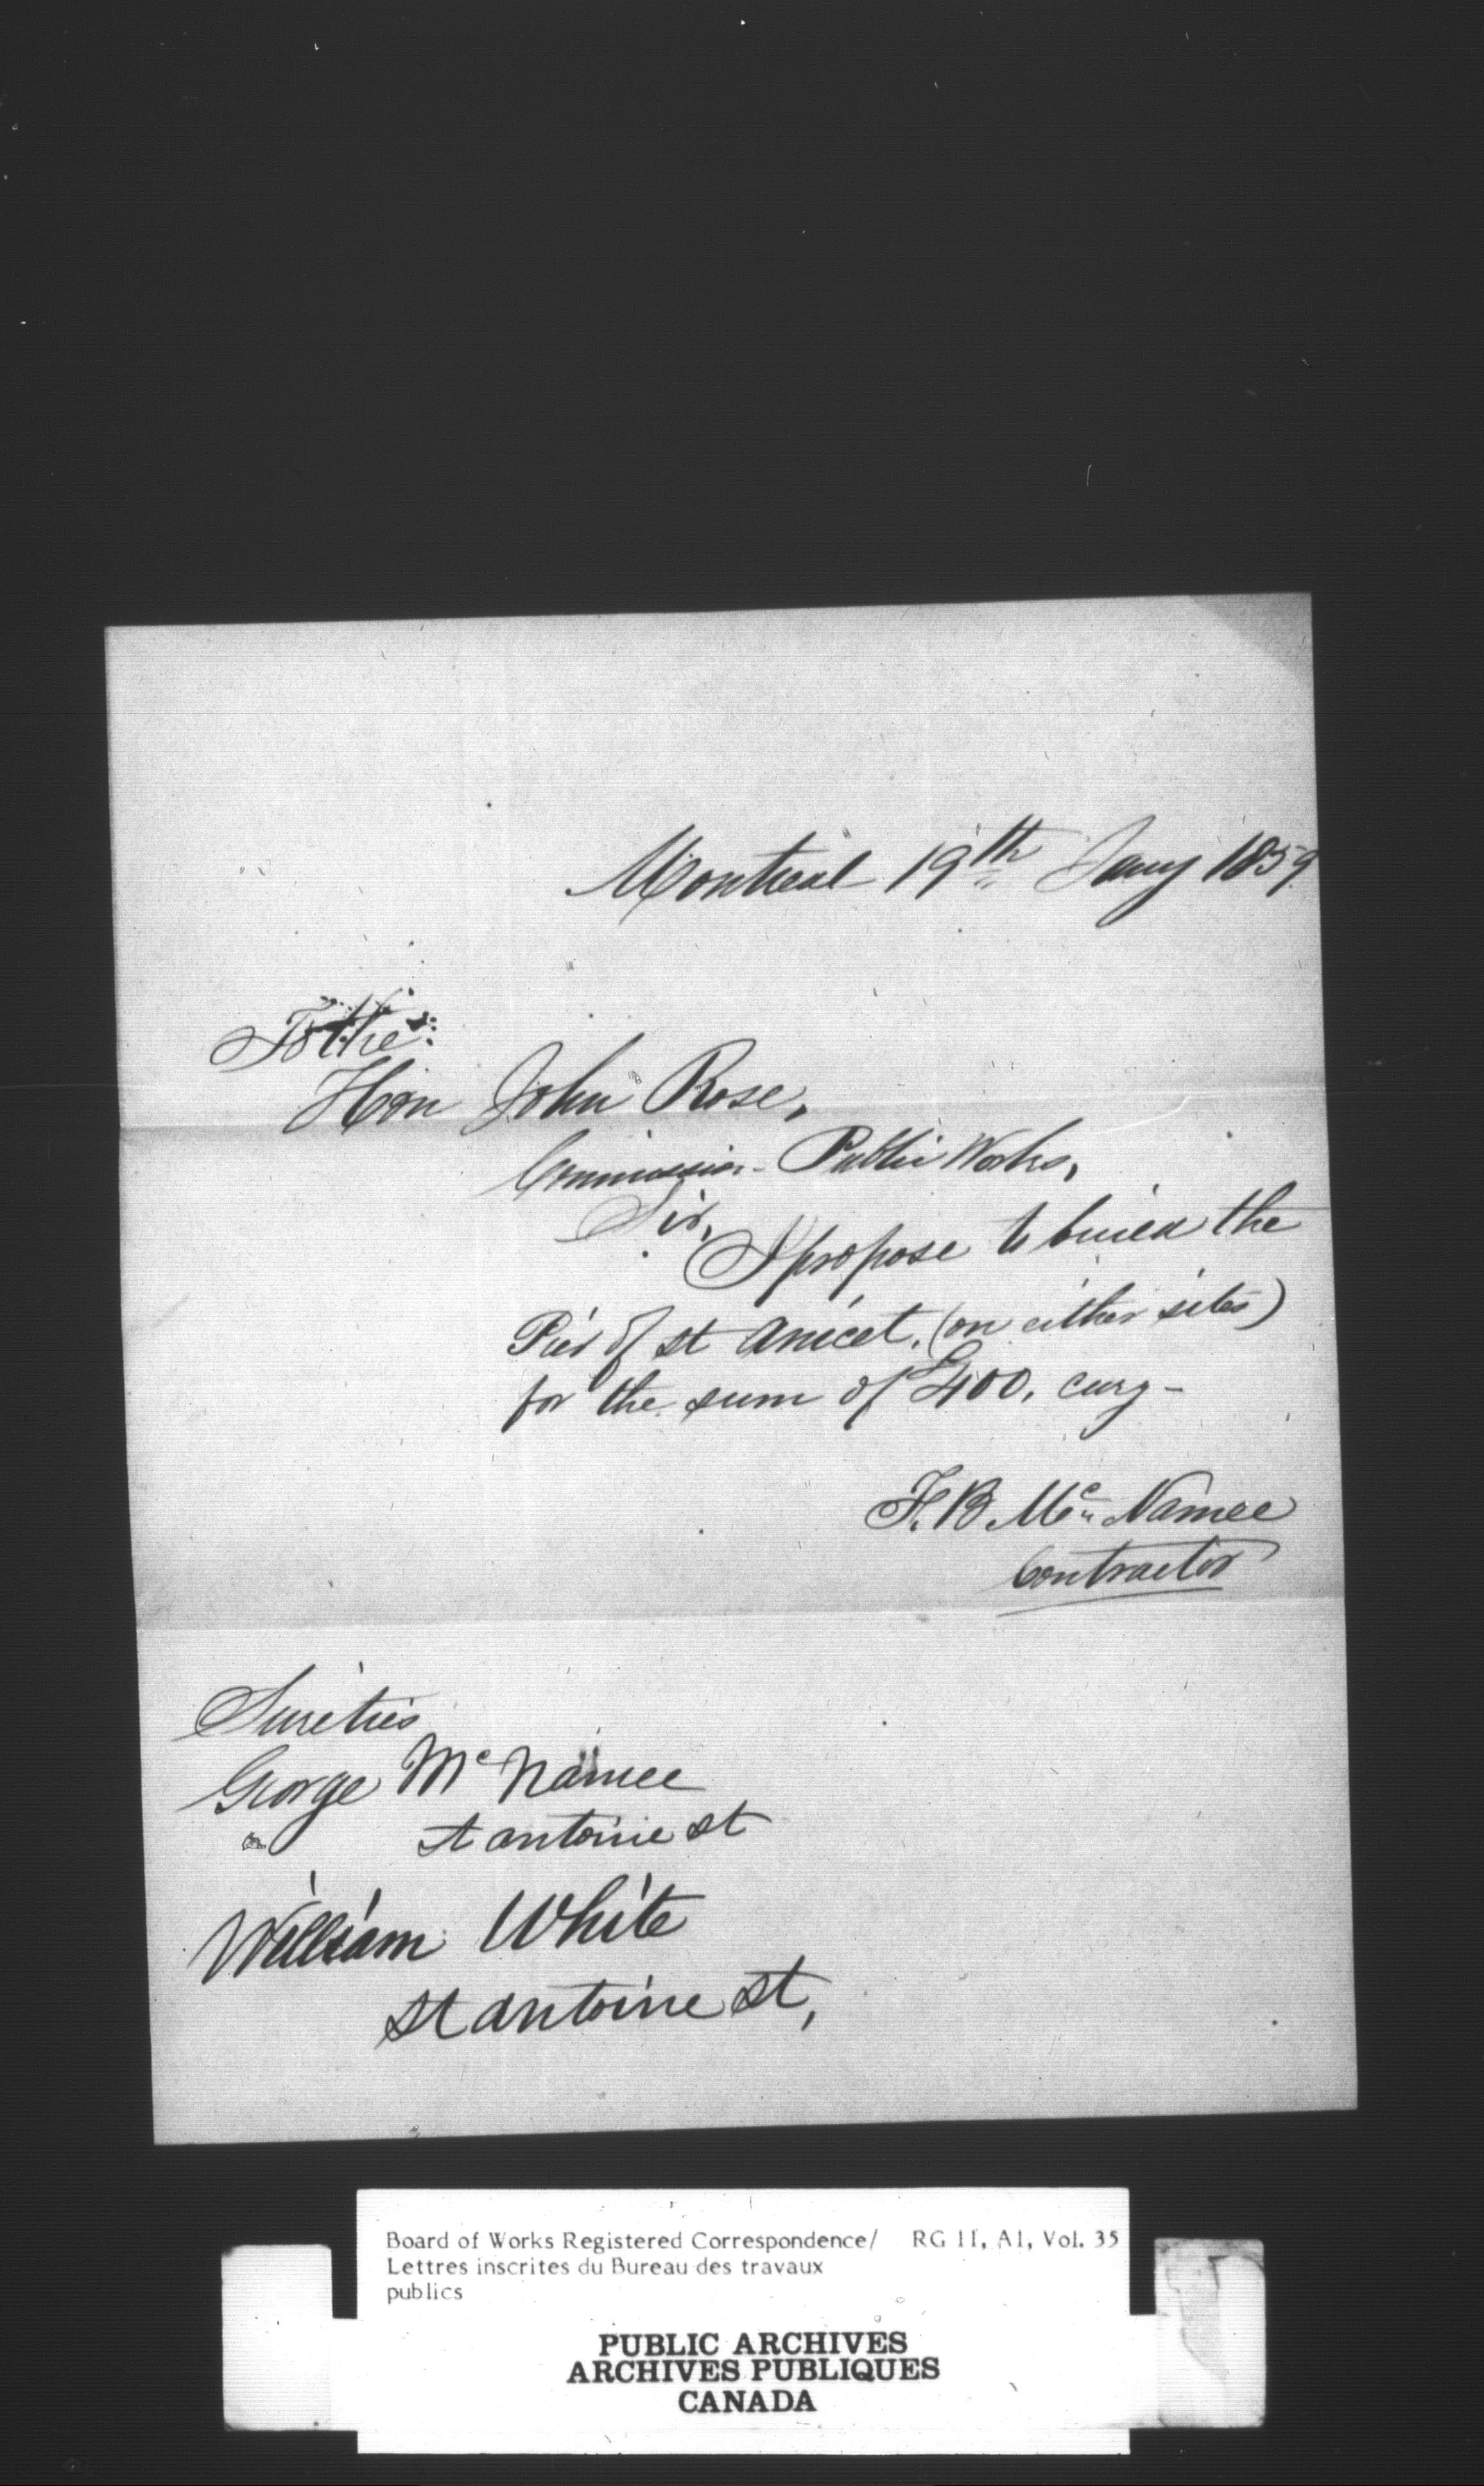 Montreal 19th Jany 1859.
To the
Hon John Rose,
Commissior. Public Works,
Sir,
I propose to build the
Pier of St Anicet, (on either sites)
for the sum of £400, curry -
F. B. Mc Namee
Contractor
Sureties
George Mc Namee
St antoine st
William White
St antoine st,
Board of Works Registered Correspondence/ RG 11, A1, Vol. 35
Lettres inscrites du Bureau des travaux
publics
PUBLIC ARCHIVES
ARCHIVES PUBLIQUES
CANADA